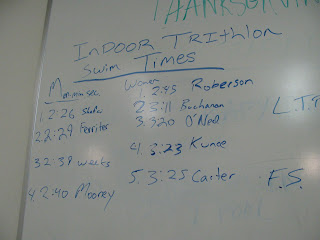 THANKSGIVIN
InDOOR TRiathlon
Swim Times
Men min sec
1. 2:26
2. 2:29 Ferriter
3. 2:39 weeks
4. 2:40 Mooney
Women
1. 2:95 Roberson
2. 3:11 Buchanan
3. 3:20 O'Neil
4. 3:23 Kunce
5. 3:25 Carter
L.T.P
F.S.